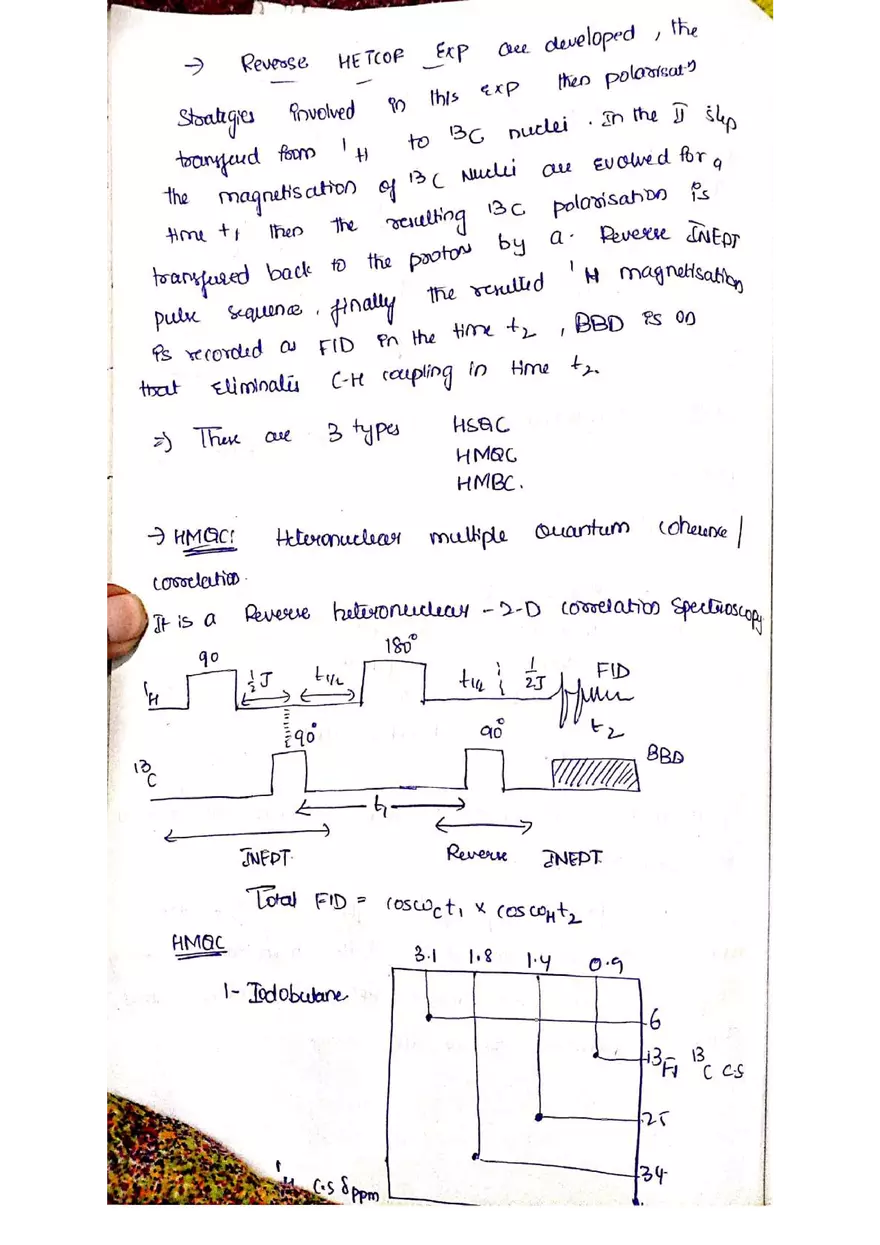 → Reverse HETCOR Exp are developed, the
Strategies involved in this exp then polarisatⁿ
transferd from ¹H to ¹³C nuclei. In the II step
the magnetisation of ¹³C Nuclei are evolved for a
time t₁ then the resulting ¹³C polarisation is
transfered back to the proton by a Reverse INEPT
pulse sequence. finally the resulted ¹H magnetisation
is recorded as FID in the time t₂, BBD is on
that Eliminates C-H coupling in time t₂.
⇒) There are 3 types HSQC
HMQC
HMBC.
→ HMQC: Heteronuclear multiple Quantum coherence /
correlation.
It is a Reverse heteronuclear - 2-D correlation Spectroscopy
90 180°
½J t₁/₂ t₁/₂ 1/2J FID
¹H
t₂
90° 90° BBD
¹³C
t₁
INEPT. Reverse INEPT.
Total FID = cosω_Ct₁ × cosω_Ht₂
HMQC
3.1 1.8 1.4 0.9
1- Iodobutane
6
13 F1 ¹³C C.S
25
34
¹H C.S δppm